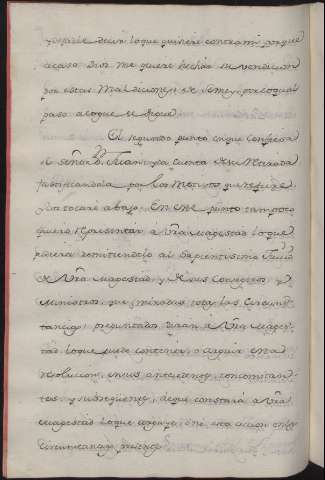 y dejarle decir lo que quisiere contra mi porque
acaso Dios me quiere hechar su vendicion
por estas maldiciones de Semey, por lo qual
paso a lo que se sigue.
El segundo punto en que confiesa
el señor D. Juan y da cuenta de su retirada
justificandola por los motivos que refiere
tocaré abajo. En este punto tampoco
quiero representar a Vra Magestad lo que
pudiera remitiendolo al sapientissimo Juicio
de Vra Magestad y de sus Consejeros y
Ministros, que miradas todas las circuns
tancias, preguntados diran a Vra Mages-
tad lo que puede contener, o arguir esta
resolucion, en sus antecedentes, concomitan-
tes y subsequentes, de que constará a Vra
Magestad lo que esta accion en las
circunstancias presentes